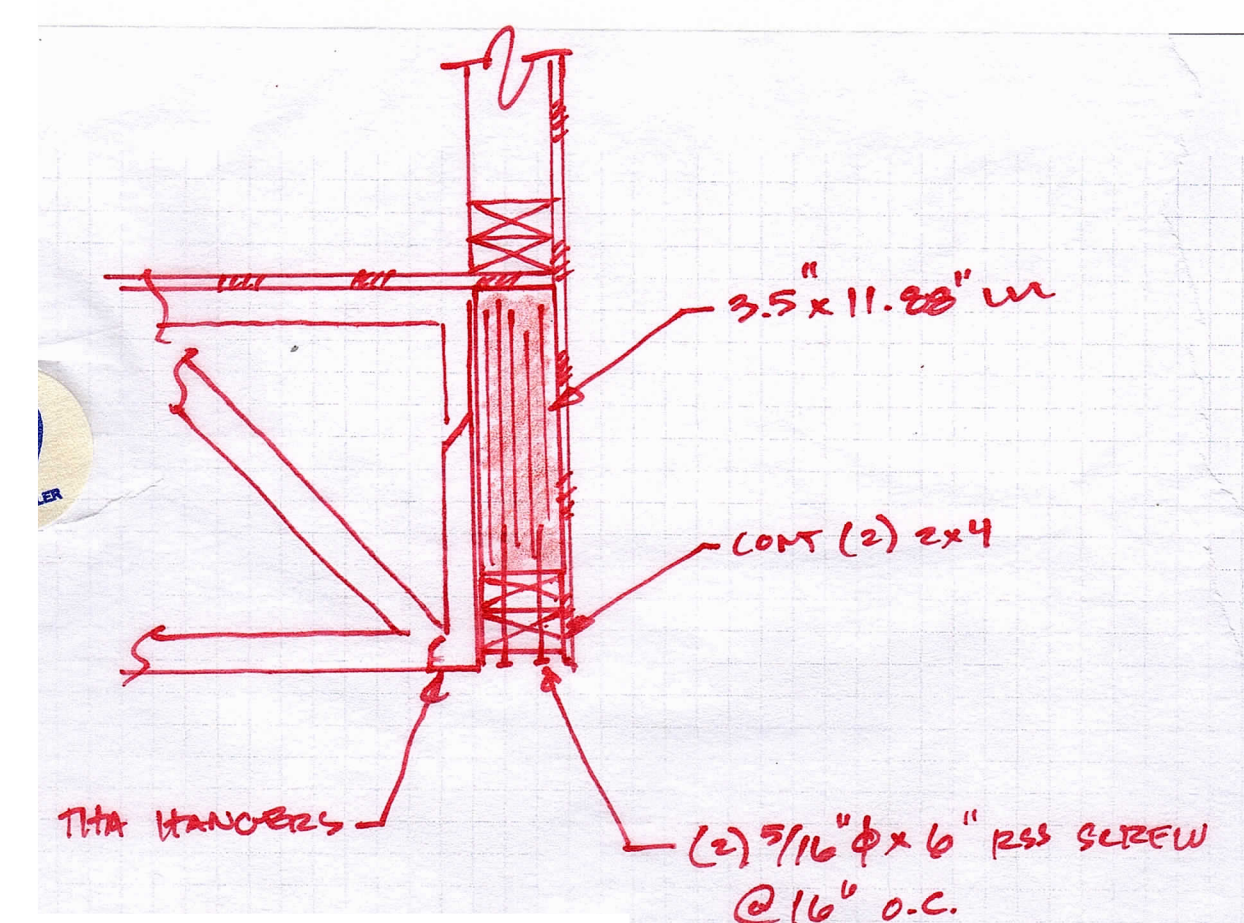 3.5" x 11.88"
CONT (2) 2x4
THA HANGERS
(2) 5/16"ϕ x 6" RSS SCREW
@ 16" O.C.
LER